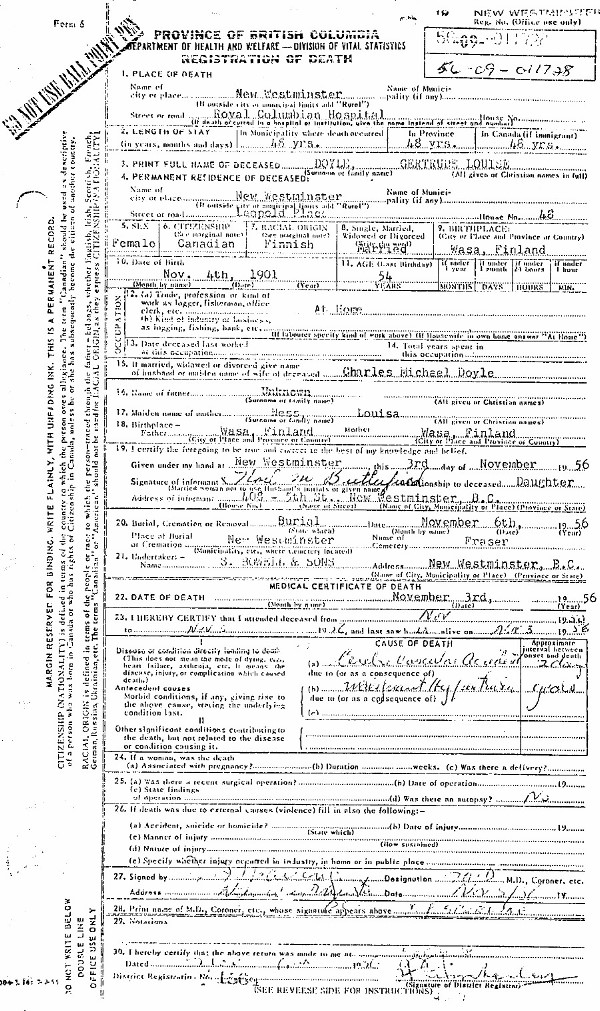 Form 6
NEW WESTMINSTER
Reg. No. (Office use only)
PROVINCE OF BRITISH COLUMBIA
DEPARTMENT OF HEALTH AND WELFARE — DIVISION OF VITAL STATISTICS
REGISTRATION OF DEATH
56-09-011728
DO NOT USE BALL POINT PEN
1. PLACE OF DEATH
Name of city or place New Westminster Name of Municipality (if any)
(If outside city or municipal limits add "Rural")
Street or road Royal Columbian Hospital House No.
(If death occurred in a hospital or institution, give the name instead of street and number)
2. LENGTH OF STAY In Municipality where death occurred In Province In Canada (if immigrant)
(in years, months and days) 48 yrs. 48 yrs. 48 yrs.
3. PRINT FULL NAME OF DECEASED DOYLE, GERTRUDE LOUISE
(Surname or family name) (All given or Christian names in full)
4. PERMANENT RESIDENCE OF DECEASED:
Name of city or place New Westminster Name of Municipality (if any)
(If outside city or municipal limits add "Rural")
Street or road Leopold Place House No. 48
5. SEX 6. CITIZENSHIP 7. RACIAL ORIGIN 8. Single, Married, Widowed or Divorced 9. BIRTHPLACE:
(See marginal note) (See marginal note) (State the word) (City or Place and Province or Country)
Female Canadian Finnish Married Wasa, Finland
10. Date of Birth 11. AGE (Last Birthday) If under 1 year If under 1 month If under 24 hours If under 1 hour
Nov. 4th, 1901 54
(Month by name) (Date) (Year) YEARS MONTHS DAYS HOURS MIN.
OCCUPATION
12. (a) Trade, profession or kind of work as logger, fisherman, office clerk, etc. At Home
(b) Kind of industry or business, as logging, fishing, bank, etc.
(If labourer specify kind of work above) (If Housewife in own home answer "At Home")
13. Date deceased last worked at this occupation 14. Total years spent in this occupation
15. If married, widowed or divorced give name of husband or maiden name of wife of deceased Charles Michael Doyle
16. Name of father Unknown
(Surname or family name) (All given or Christian names)
17. Maiden name of mother Hess, Louisa
(Surname or family name) (All given or Christian names)
18. Birthplace— Father Wasa, Finland Mother Wasa, Finland
(City or Place and Province or Country) (City or Place and Province or Country)
19. I certify the foregoing to be true and correct to the best of my knowledge and belief.
Given under my hand at New Westminster this 3rd day of November 1956
Signature of informant Relationship to deceased Daughter
Address of informant 408 - 5th St., New Westminster, B.C.
(House No.) (Name of Street) (Name of City, Municipality or Place) (Province or State)
20. Burial, Cremation or Removal Burial Date November 6th, 1956
(State which) (Month by name) (Date) (Year)
Place of Burial or Cremation New Westminster Name of Cemetery Fraser
(Municipality, etc., where Cemetery located)
21. Undertaker— Name S. BOWELL & SONS Address New Westminster, B.C.
(Name of City, Municipality or Place) (Province or State)
MEDICAL CERTIFICATE OF DEATH
22. DATE OF DEATH November 3rd, 1956
(Month by name) (Date) (Year)
23. I HEREBY CERTIFY that I attended deceased from Nov
to Nov 3 1956, and last saw h alive on Nov 3
CAUSE OF DEATH Approximate interval between onset and death
I
Disease or condition directly leading to death (This does not mean the mode of dying, e.g., heart failure, asthenia, etc. It means the disease, injury, or complication which caused death) (a) Cerebro Vascular Accident
due to (or as a consequence of)
Antecedent causes
Morbid conditions, if any, giving rise to the above cause, stating the underlying condition last. (b) Malignant Hypertension years
due to (or as a consequence of)
(c)
II
Other significant conditions contributing to the death, but not related to the disease or condition causing it.
24. If a woman, was the death
(a) Associated with pregnancy? (b) Duration weeks. (c) Was there a delivery?
25. (a) Was there a recent surgical operation? (b) Date of operation 19
(c) State findings of operation (d) Was there an autopsy? No
26. If death was due to external causes (violence) fill in also the following:—
(a) Accident, suicide or homicide? (b) Date of injury 19
(State which)
(c) Manner of injury
(How sustained)
(d) Nature of injury
(e) Specify whether injury occurred in industry, in home or in public place
27. Signed by Designation M.D., Coroner, etc.
Address Date
28. Print name of M.D., Coroner, etc., whose signature appears above
29. Notations
30. I hereby certify that the above return was made to me at
Dated
District Registration No. (Signature of District Registrar)
(SEE REVERSE SIDE FOR INSTRUCTIONS)
MARGIN RESERVED FOR BINDING. WRITE PLAINLY, WITH UNFADING INK. THIS IS A PERMANENT RECORD.
DO NOT WRITE BELOW DOUBLE LINE
OFFICE USE ONLY